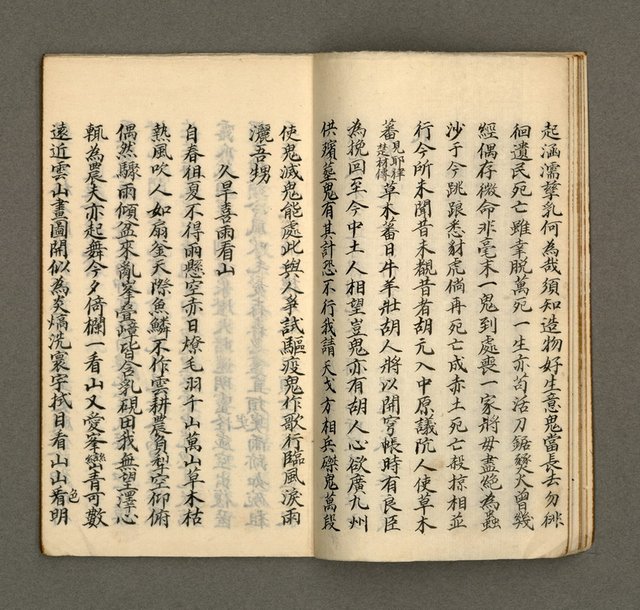 起涵濡孳乳何為哉須知造物好生意鬼當長去勿徘
徊遺民死亡雖幸脱萬死一生亦苟活刀鋸㷼火曽幾
經偶存微命非毫末一鬼到處喪一家將毋盡絕為蟲
沙于今跳踉悉豺虎倘再死亡成赤土死亡殺掠相並
行今所未聞昔未覩昔者胡元入中原議阬人使草木
蕃見耶律楚材傳草木蕃日牛羊壯胡人將以開穹帳時有良臣
為挽回至今中土人相望豈鬼亦有胡人心欲廣九州
供殯塟鬼有其計恐不行我請天戈方相兵磔鬼萬段
使鬼滅鬼能處此與人爭試驅疫鬼作歌行臨風淚雨
灑吾甥
久旱喜雨看山
自春徂夏不得雨懸空赤日燎毛羽千山萬山草木枯
熱風吹人如扇釜天際魚鱗不作雲耕農負犁空仰俯
偶然驟雨傾盆來亂峯疊嶂皆含乳硯田我無望澤心
輒為農夫亦起舞今夕倚欄一看山又愛峯巒青可數
遠近雲山畫圖開似為炎熇洗寰宇拭目看山山看明
色